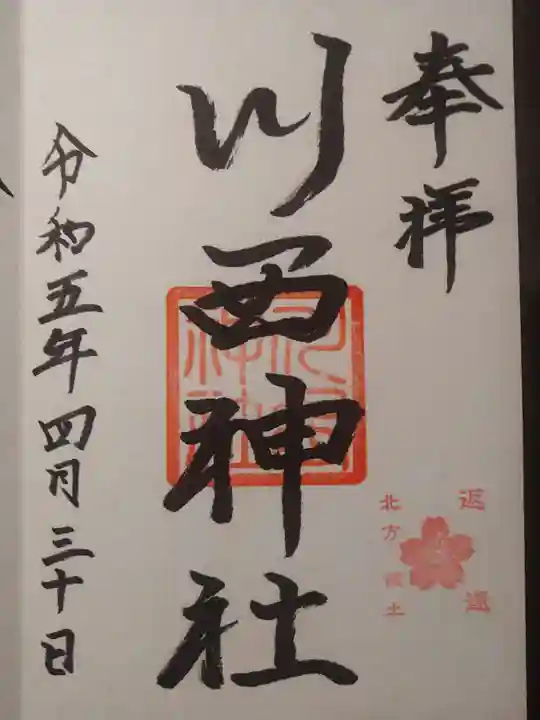 奉拝
返還
北方領土
川西神社
令和五年四月三十日